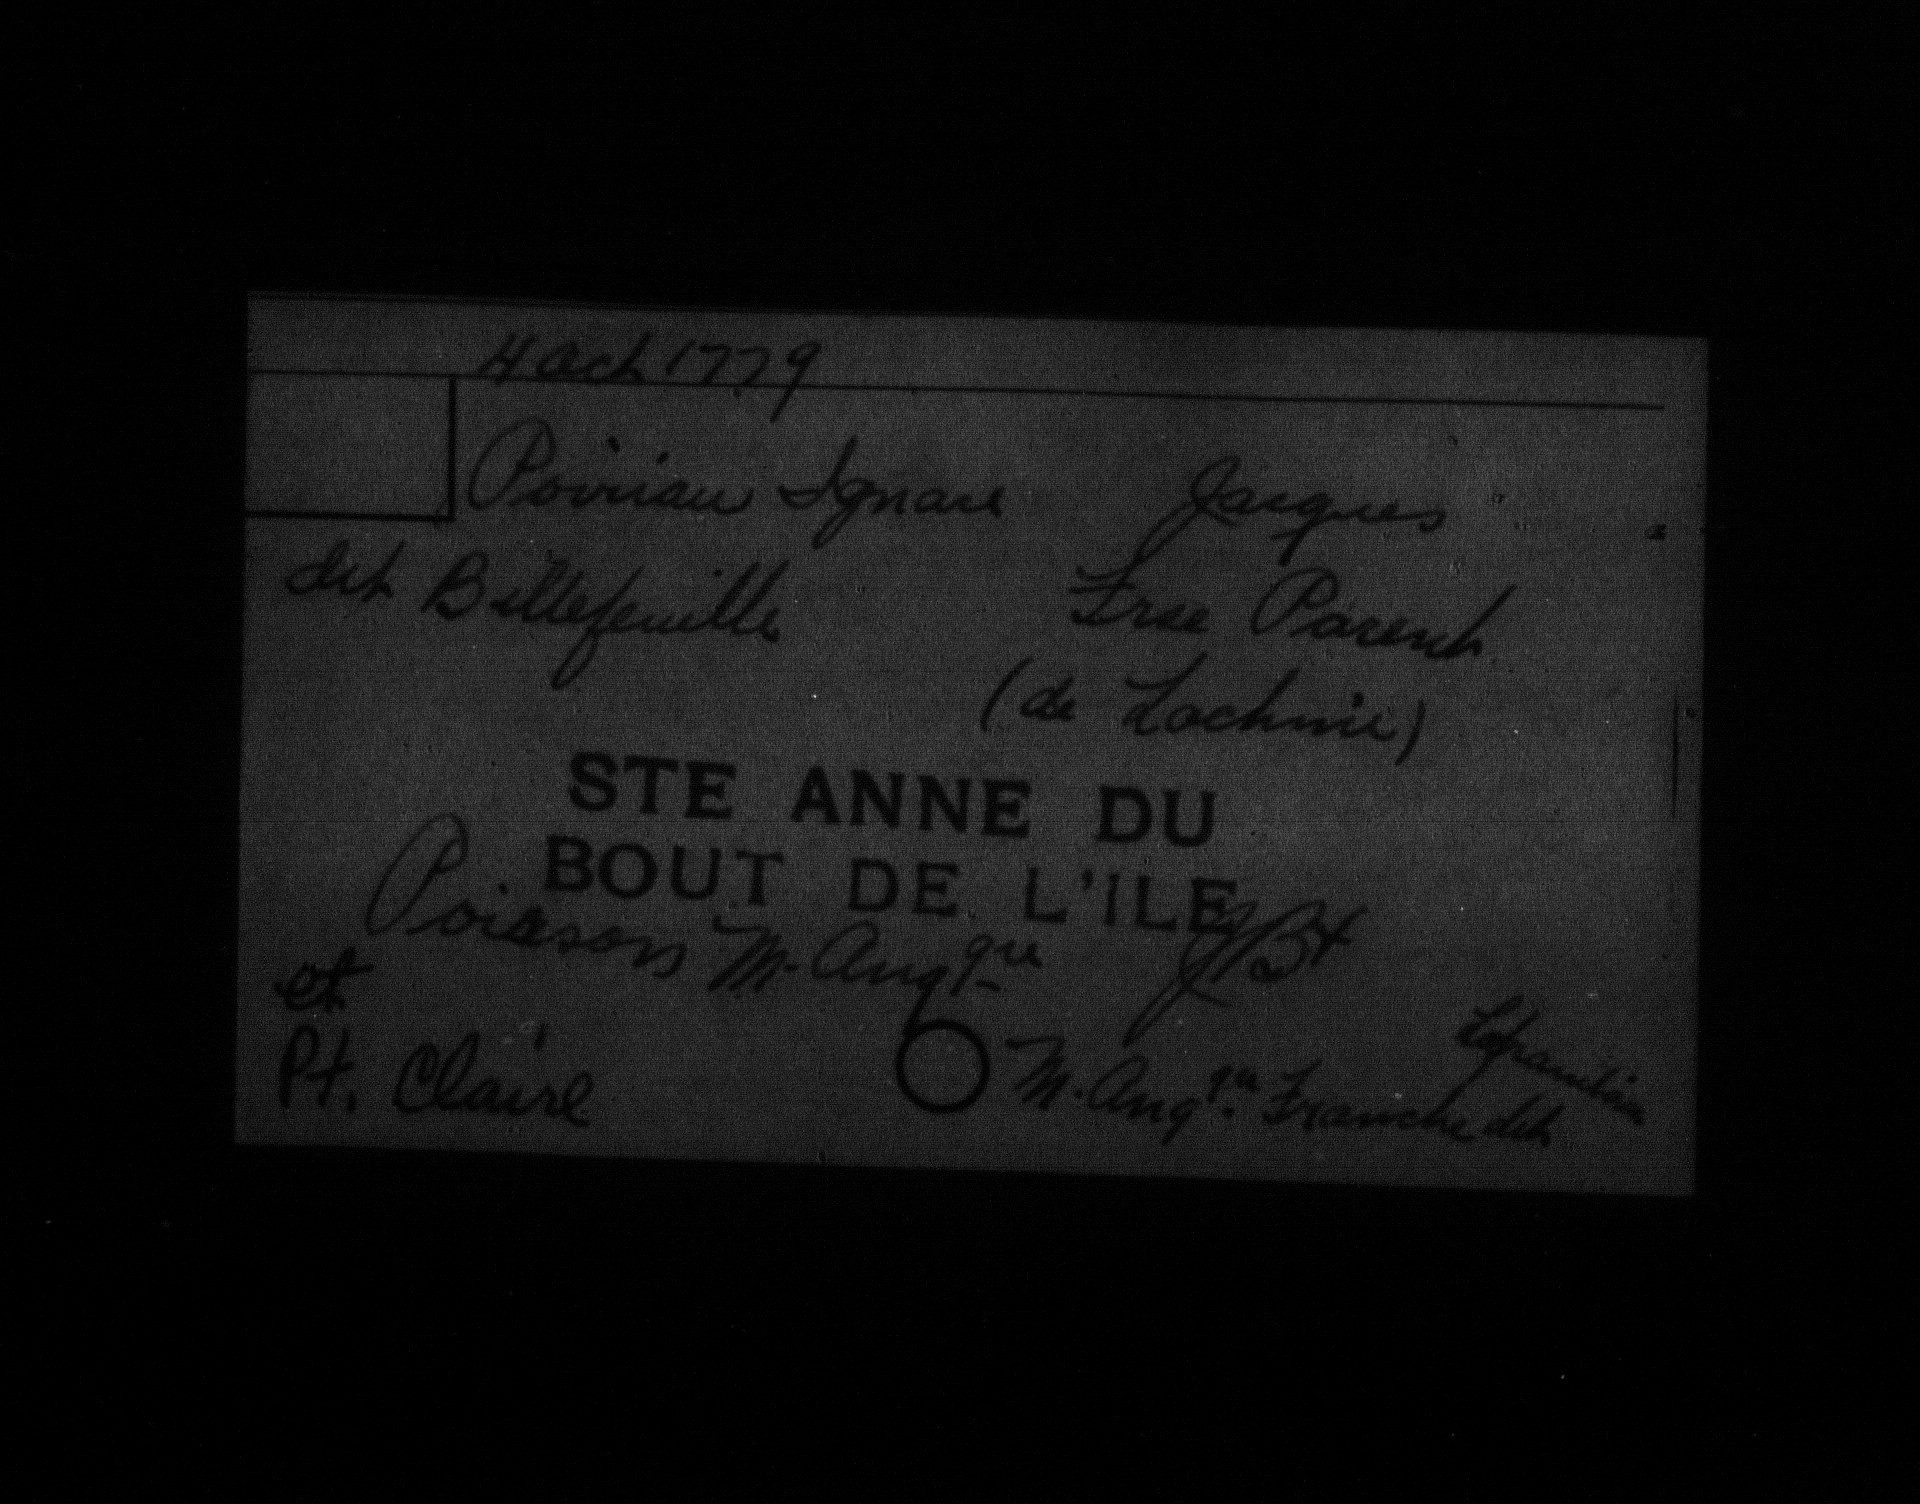 4 Oct 1779
Poiriau Ignace Jacques
dit Bellefeuille Frse Parent
(de Lachine)
STE ANNE DU
BOUT DE L'ILE
Poisson M. Angque JBt
et
Pt. Claire M. Angque. Franche dit